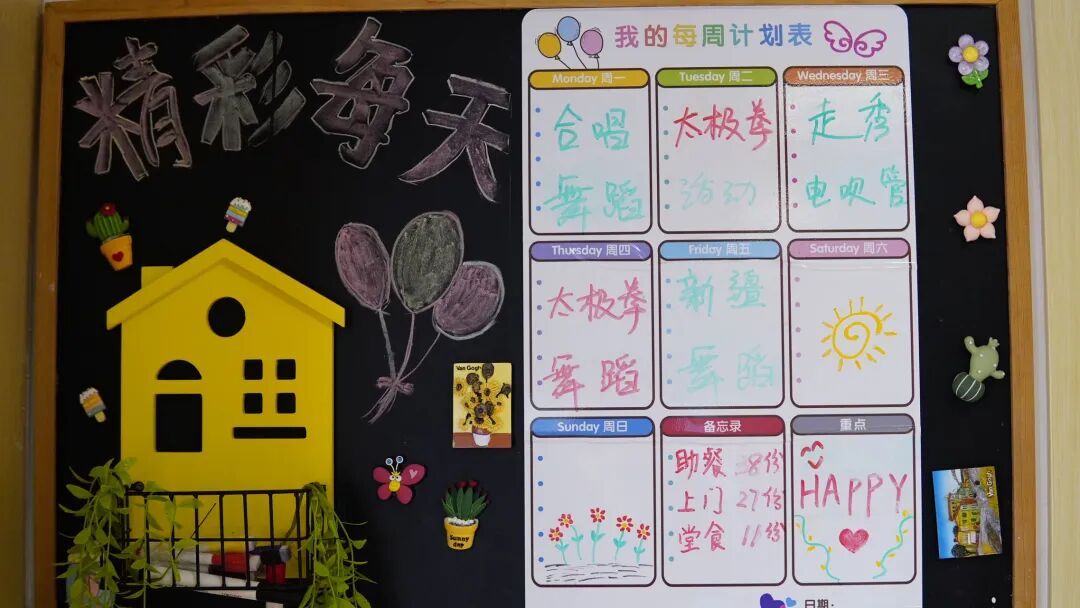 精彩每天
我的每周计划表
Monday 周一
合唱
舞蹈
Tuesday 周二
太极拳
活动
Wednesday 周三
走秀
电吹管
Thursday 周四
太极拳
舞蹈
Friday 周五
新疆
舞蹈
Saturday 周六
Sunday 周日
备忘录
助餐 38份
上门 27份
堂食 11份
重点
HAPPY
日期:
Van Gogh
Sunny
day
Van Gogh